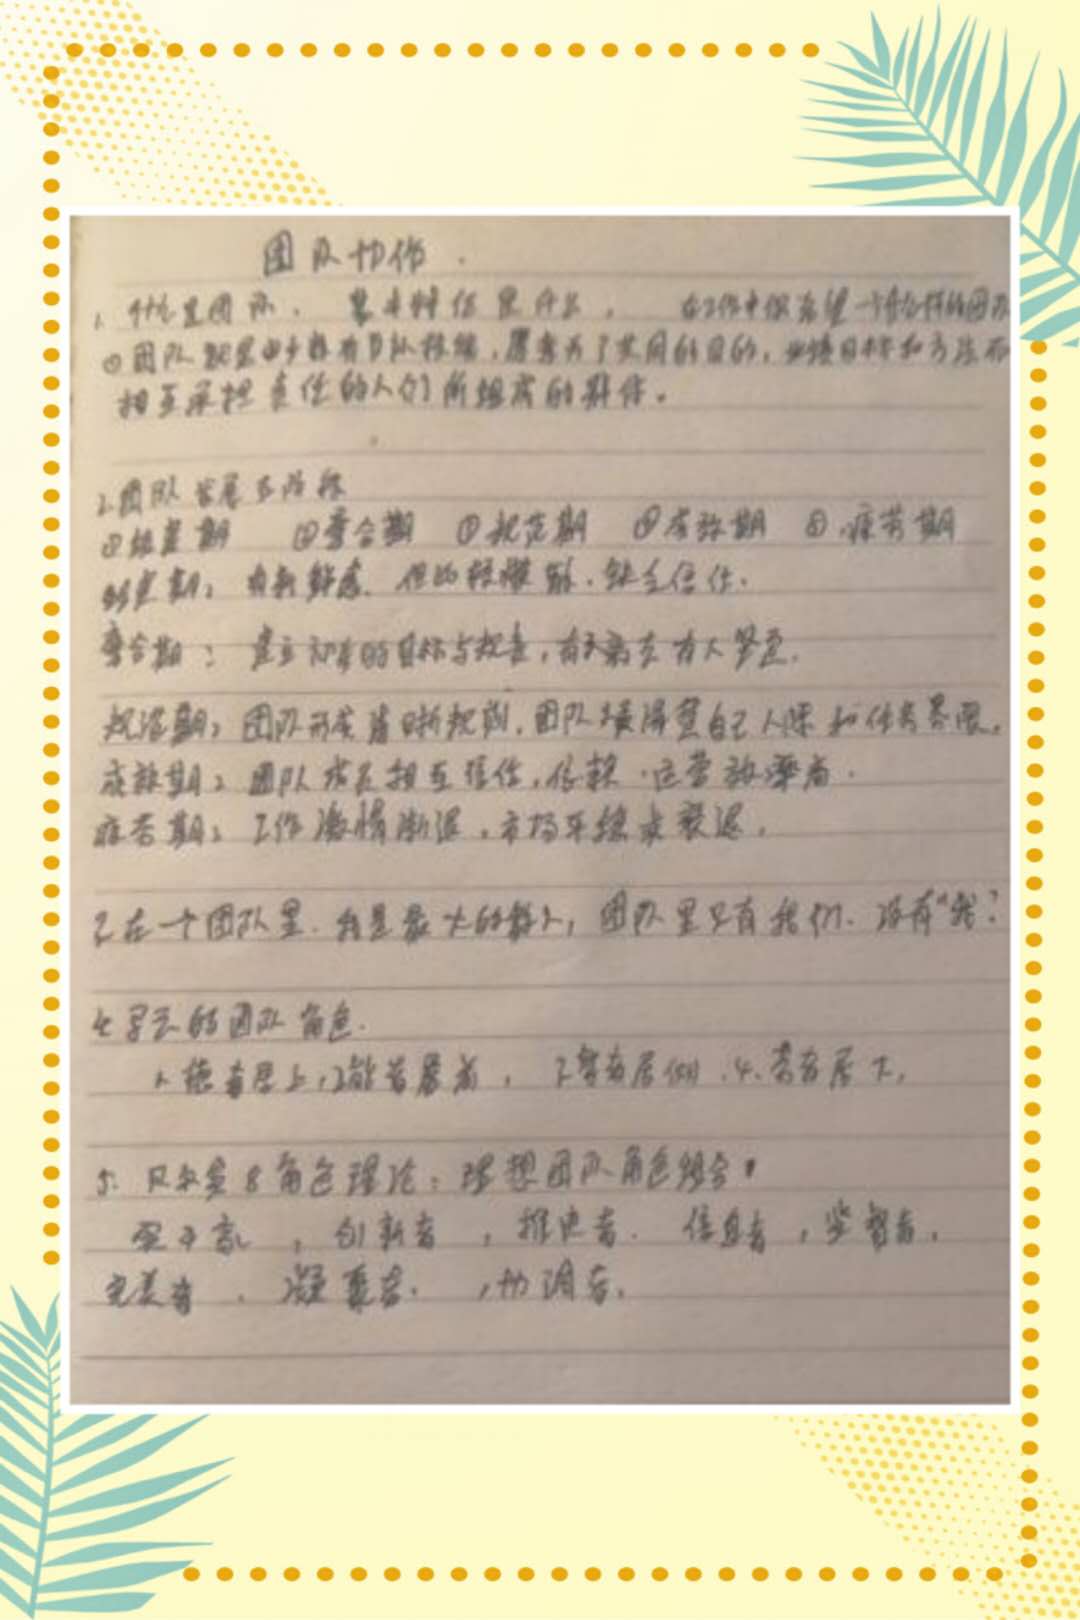 团队协作.
1. 什么是团队、基本特征是什么, 在工作中你希望一个什么样的团队
①团队就是由少数有 技能,愿意为了共同的目的,业绩目标和方法而
相互承担责任的人们所组成的群体。
2.团队发展五阶段
①组建期 ②磨合期 ③规范期 ④成效期 ⑤.疲劳期
组建期: 有新鲜感、但 缺乏信任.
磨合期: 建立初有的目标与规章,有 离去有人坚定.
规范期: 团队形成清晰规则,团队 清楚自己人际和任务界限.
成效期: 团队成员相互信任,依赖.运营效率高.
疲劳期: 工作激情渐退,市场 衰退.
3.在一个团队里.我是最大的敌人,团队里只有我们.没有"我"
4. 的团队角色.
1.德者居上,2能者居前, 3.智者居侧.4.劳者居下,
5. 贝尔宾8角色理论: 理想团队角色组合:
实干家, 创新者, 推进者. 信息者, 监督者,
完美者. 凝聚者. ,协调者.